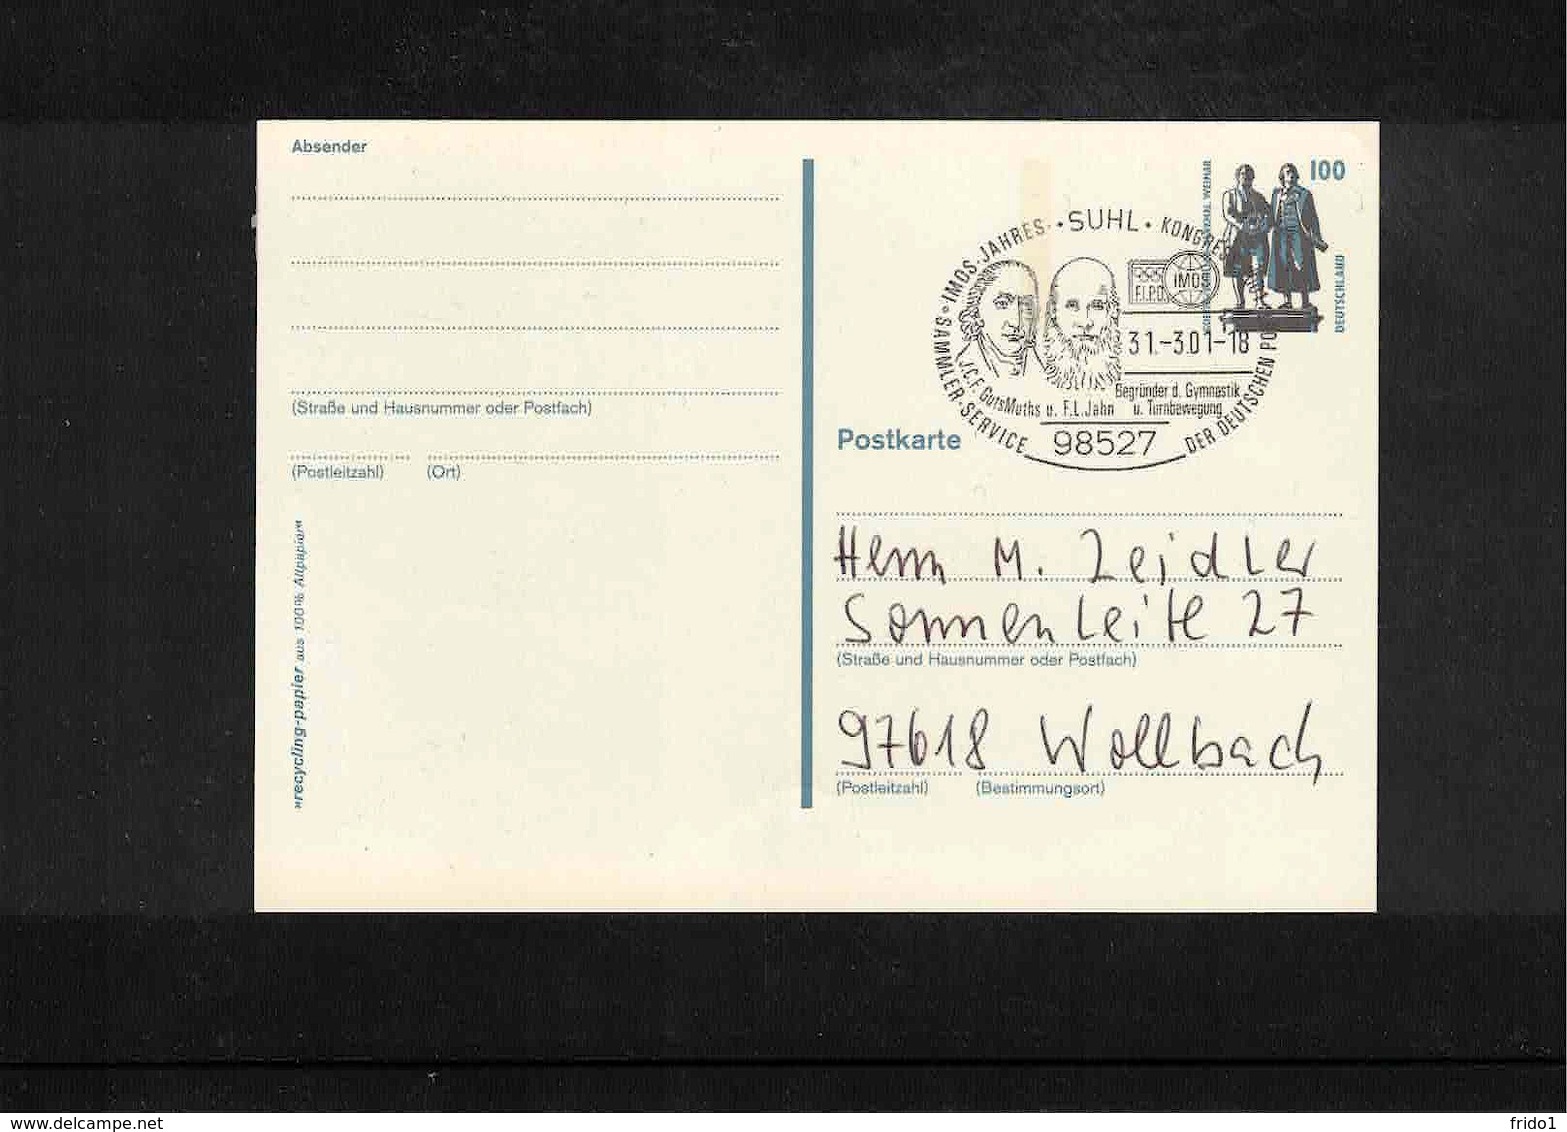 Absender
(Straße und Hausnummer oder Postfach)
(Postleitzahl) (Ort)
»recycling-papier aus 100% Altpapier«
100
DEUTSCHLAND
• IMOS-JAHRES- • SUHL •
SAMMLER-SERVICE
DER DEUTSCHEN
F.I.P.O.
IMOS
31.-3.01-18
J.C.F. GutsMuths u. F.L. Jahn
Begründer d. Gymnastik
u. Turnbewegung
98527
Postkarte
Herrn M. Zeidler
Sonnenleite 27
(Straße und Hausnummer oder Postfach)
97618 Wollbach
(Postleitzahl) (Bestimmungsort)
www.delcampe.net
frido1